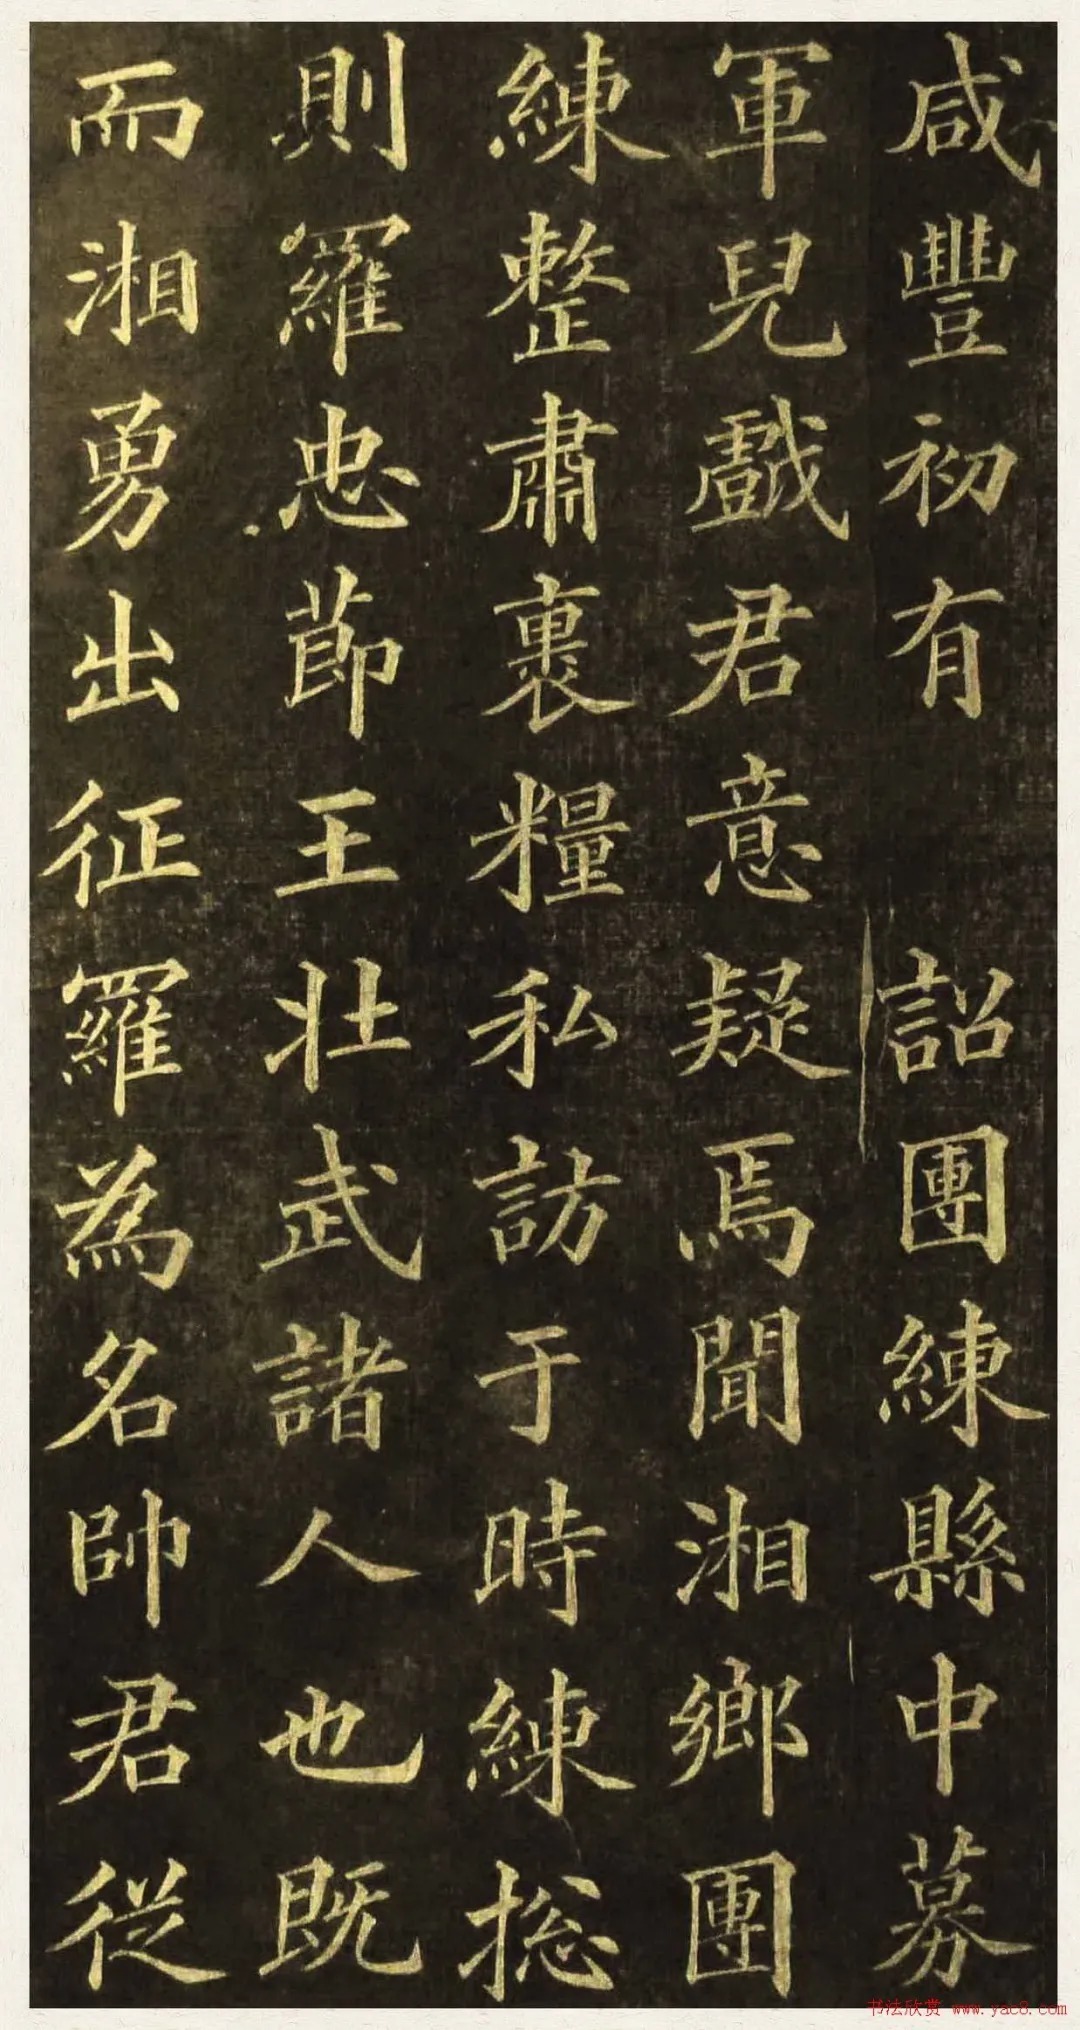 咸豐初有　詔團練縣中募
軍兒戲君意疑焉聞湘鄉團
練整肅裹糧私訪于時練捴
則羅忠節王壯武諸人也既
而湘勇出征羅為名帥君從
书法欣赏 www.yac8.com